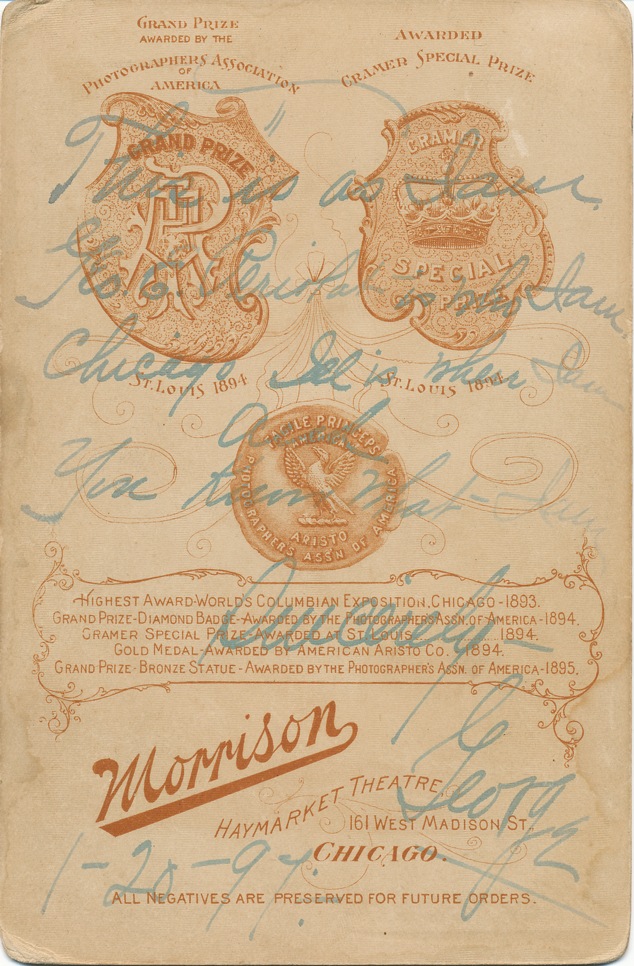 GRAND PRIZE
AWARDED BY THE
PHOTOGRAPHERS ASSOCIATION
OF
AMERICA
AWARDED
CRAMER SPECIAL PRIZE
GRAND PRIZE
CRAMER
SPECIAL
This is as I am.
is who I am.
Chicago Ill is when I am
ST. LOUIS 1894
ST. LOUIS 1894
You know what I am
FACILE PRINCEPS
AMERICA
PHOTOGRAPHER'S ASSN OF AMERICA
ARISTO
Sincerely
HIGHEST AWARD-WORLDS COLUMBIAN EXPOSITION, CHICAGO-1893.
GRAND PRIZE-DIAMOND BADGE-AWARDED BY THE PHOTOGRAPHERS ASSN. OF AMERICA-1894.
CRAMER SPECIAL PRIZE-AWARDED AT ST. LOUIS. 1894.
GOLD MEDAL-AWARDED BY AMERICAN ARISTO CO. 1894.
GRAND PRIZE-BRONZE STATUE-AWARDED BY THE PHOTOGRAPHER'S ASSN. OF AMERICA-1895.
George
Morrison
HAYMARKET THEATRE,
161 WEST MADISON ST.,
CHICAGO.
ALL NEGATIVES ARE PRESERVED FOR FUTURE ORDERS.